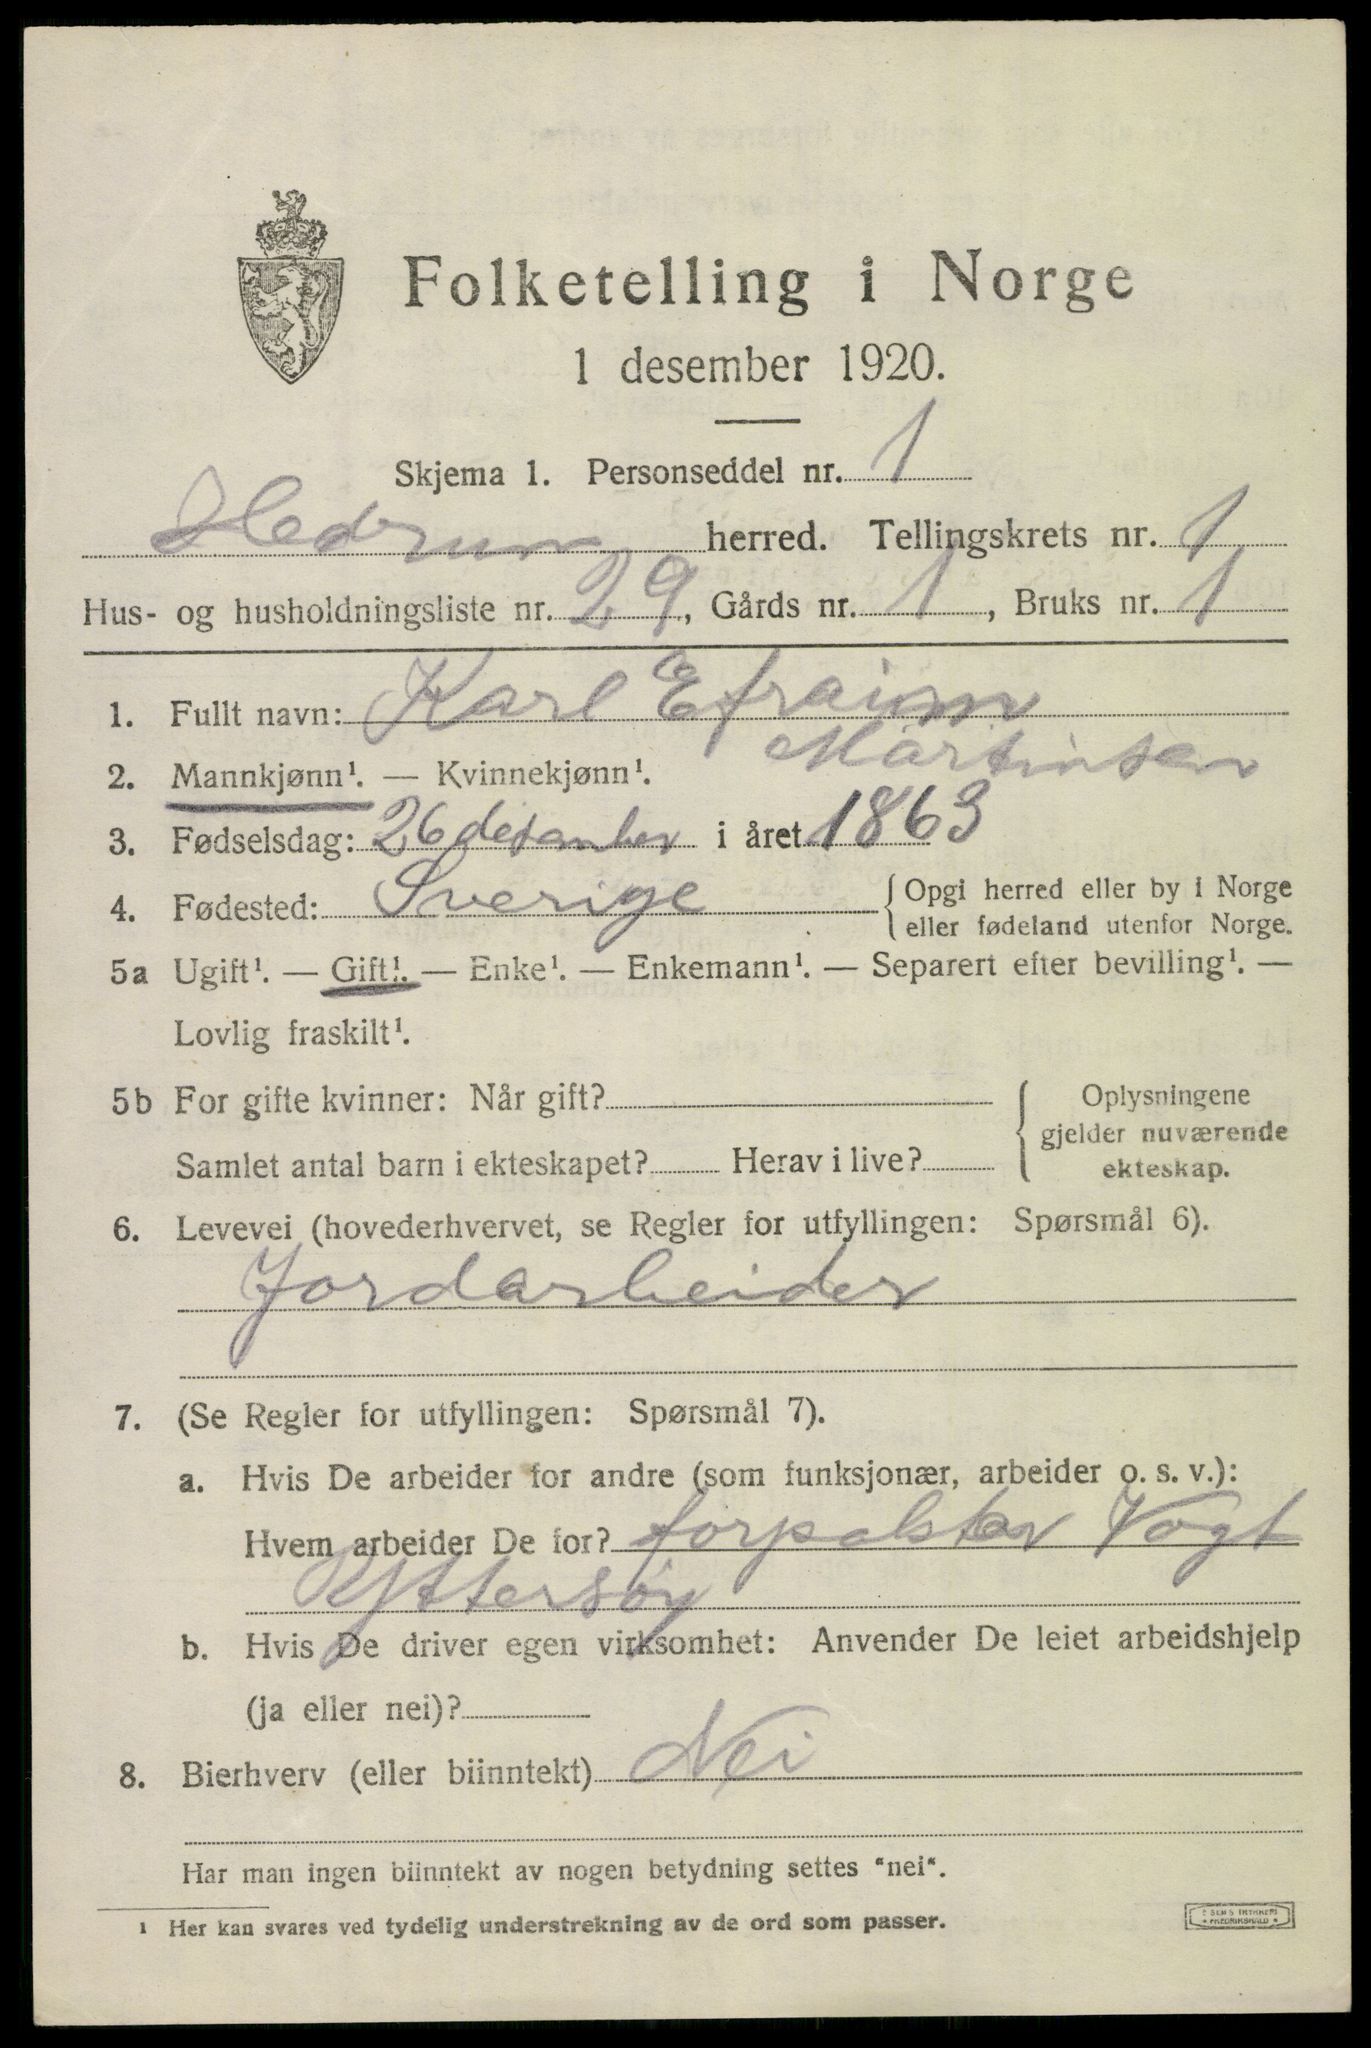 Folketelling i Norge
1 desember 1920.
Skjema 1. Personseddel nr. 1
Hedrum herred. Tellingskrets nr. 1
Hus- og husholdningsliste nr. 29, Gårds nr. 1, Bruks nr. 1
1. Fullt navn: Karl Efraim
Martinsen
2. Mannkjønn¹. — Kvinnekjønn¹.
3. Fødselsdag: 26 desember i året 1863
4. Fødested: Sverige
Opgi herred eller by i Norge
eller fødeland utenfor Norge.
5a Ugift¹. — Gift¹. — Enke¹. — Enkemann¹. — Separert efter bevilling¹. —
Lovlig fraskilt¹.
5b For gifte kvinner: Når gift?
Samlet antal barn i ekteskapet? Herav i live?
Oplysningene
gjelder nuværende
ekteskap.
6. Levevei (hovederhvervet, se Regler for utfyllingen: Spørsmål 6).
Jordarbeider
7. (Se Regler for utfyllingen: Spørsmål 7).
a. Hvis De arbeider for andre (som funksjonær, arbeider o. s. v.):
Hvem arbeider De for? forpakter Vogt
Yttersøy
b. Hvis De driver egen virksomhet: Anvender De leiet arbeidshjelp
(ja eller nei)?
8. Bierhverv (eller biinntekt) Nei
Har man ingen biinntekt av nogen betydning settes "nei".
¹ Her kan svares ved tydelig understrekning av de ord som passer.